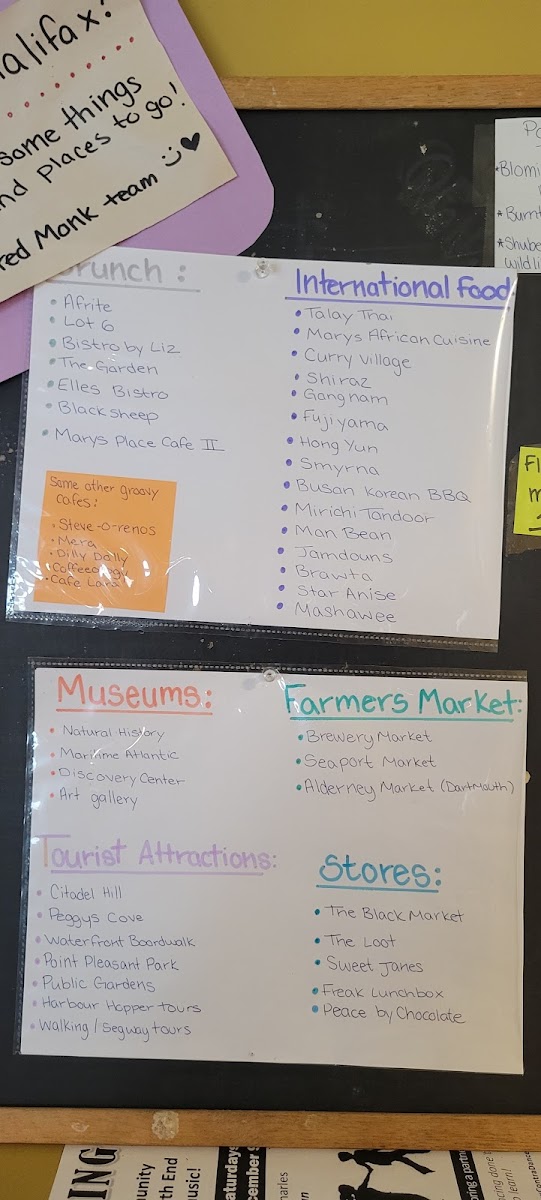 alifax?
some things
nd places to go!
red Monk team
Brunch :
• Afrite
• Lot 6
• Bistro by Liz
• The Garden
• Elles Bistro
• Blacksheep
• Marys Place Cafe II
Some other groovy
cafes:
• Steve-o-renos
• Mera
• Dilly Dally
• Coffeeology
• Cafe Lara
International Food
• Talay Thai
• Marys African Cuisine
• Curry Village
• Shiraz
• Gangnam
• Fujiyama
• Hong Yun
• Smyrna
• Busan Korean BBQ
• Mirichi Tandoor
• Man Bean
• Jamdouns
• Brawta
• Star Anise
• Mashawee
*Blomi
*Burnt
*Shube
wildli
Museums:
• Natural History
• Maritime Atlantic
• Discovery Center
• Art gallery
Farmers Market:
• Brewery Market
• Seaport Market
• Alderney Market (Dartmouth)
Tourist Attractions:
• Citadel Hill
• Peggys Cove
• Waterfront Boardwalk
• Point Pleasant Park
• Public Gardens
• Harbour Hopper tours
• Walking / Segway tours
Stores:
• The Black Market
• The Loot
• Sweet Janes
• Freak Lunchbox
• Peace by Chocolate
ING
unity
th End
usic!
aturdays
cember
harles